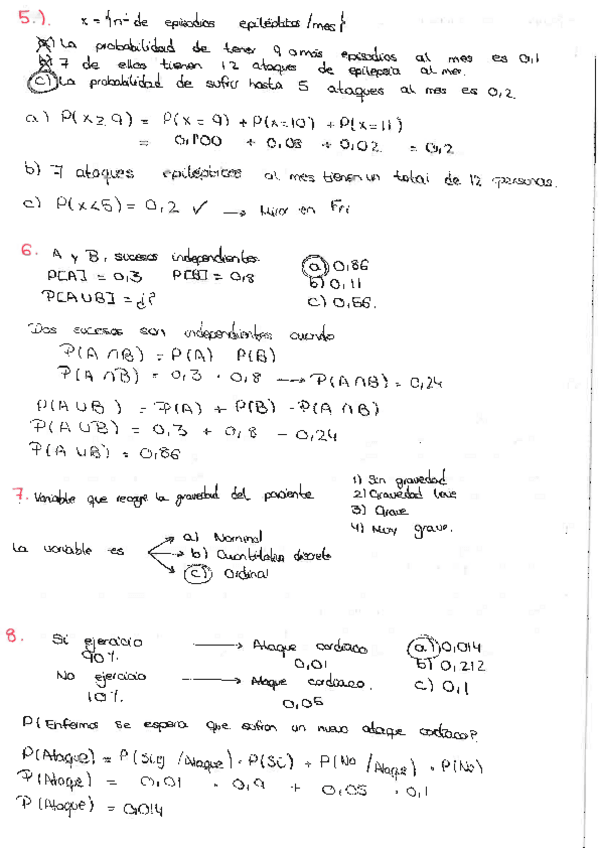 5.). x = {nº de episodios epilépticos /mes}
a) La probabilidad de tener 9 o más episodios al mes es 0,1
b) 7 de ellos tienen 12 ataques de epilepsia al mes.
c) La probabilidad de sufrir hasta 5 ataques al mes es 0,2.
a) P(x ≥ 9) = P(x = 9) + P(x=10) + P(x=11)
= 0,100 + 0,08 + 0,02 = 0,2
b) 7 ataques epilépticos al mes tienen un total de 12 personas.
c) P(x<5) = 0,2 ✓ → Mirar en Fri
6. A y B, sucesos independientes. a) 0,86
P[A] = 0,3 P[B] = 0,8 b) 0,11
P[A∪B] = ¿? c) 0,56.
Dos sucesos son independientes cuando
P(A ∩ B) = P(A) P(B)
P(A ∩ B) = 0,3 · 0,8 → P(A ∩ B) = 0,24
P(A ∪ B) = P(A) + P(B) - P(A ∩ B)
P(A ∪ B) = 0,3 + 0,8 - 0,24
P(A ∪ B) = 0,86
7. Variable que recoge la gravedad del paciente
1) Sin gravedad
2) Gravedad leve
3) Grave
4) Muy grave.
La variable es
a) Nominal
b) Cuantitativa discreta
c) Ordinal
8. Si ejercicio → Ataque cardiaco a) 0,014
90% 0,01 b) 0,212
No ejercicio → Ataque cardiaco. c) 0,1
10% 0,05
P(Enfermos se espera que sufran un nuevo ataque cardiaco?
P(Ataque) = P(Sig /Ataque) · P(Si) + P(No /Ataque) · P(No)
P(Ataque) = 0,01 · 0,9 + 0,05 · 0,1
P(Ataque) = 0,014